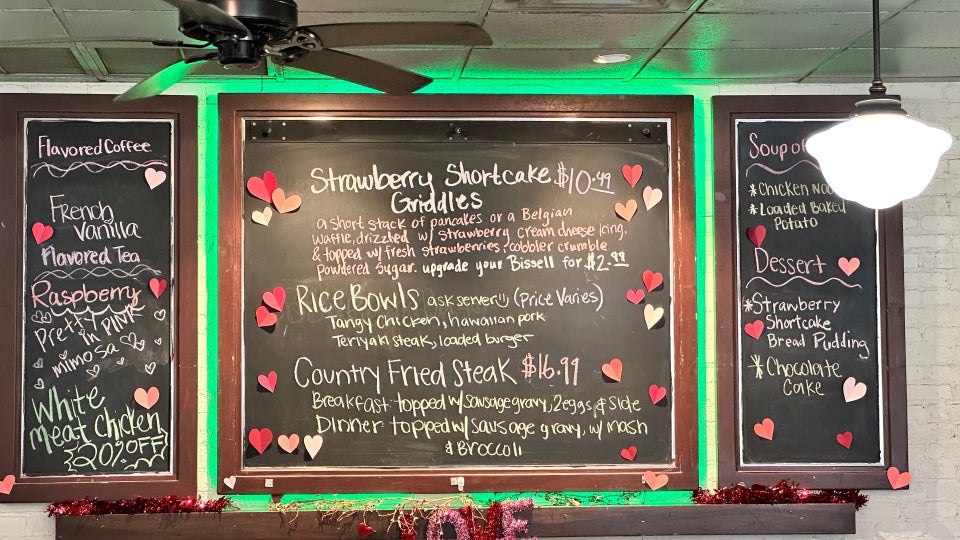 Flavored Coffee
French
Vanilla
Flavored Tea
Raspberry
Pretty in PINK
mimosa
White
meat chicken
20% OFF
Strawberry Shortcake $10.99
Griddles
a short stack of pancakes or a Belgian
waffle, drizzled w/ strawberry cream cheese icing,
& topped w/ fresh strawberries, cobbler crumble
powdered sugar. upgrade your Bissell for $2.99
Rice Bowls ask server (Price Varies)
Tangy Chicken, hawaiian pork
Teriyaki steak, loaded burger
Country Fried Steak $16.99
Breakfast topped w/ sausage gravy, 2 eggs, & side
Dinner topped w/ sausage gravy, w/ mash
& Broccoli
Soup of
*Chicken Noo
*Loaded Baked
Potato
Dessert
*Strawberry
Shortcake
Bread Pudding
*Chocolate
Cake